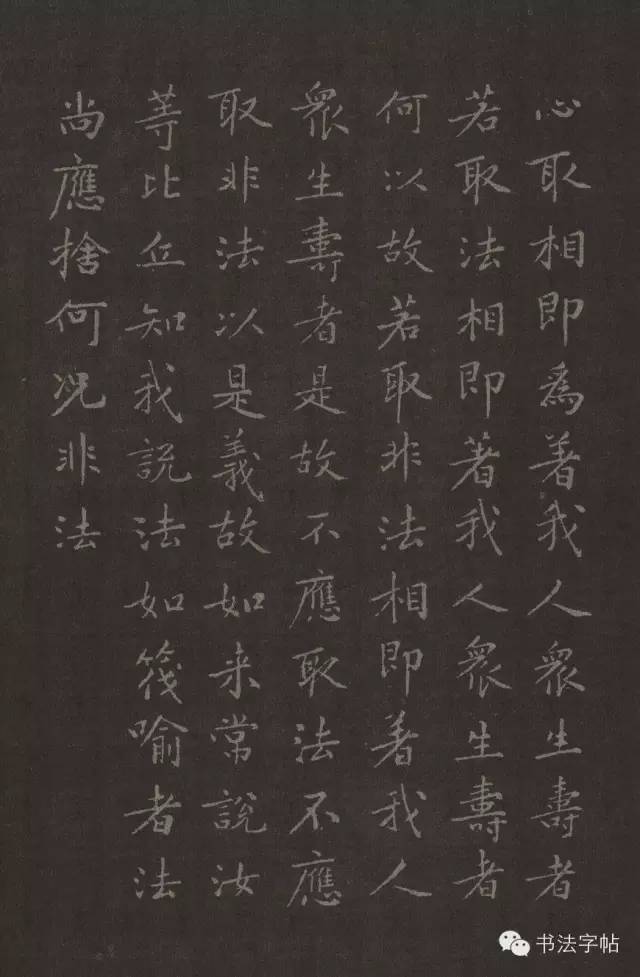 心取相即為著我人衆生壽者
若取法相即著我人衆生壽者
何以故若取非法相即著我人
衆生壽者是故不應取法不應
取非法以是義故如来常說汝
等比丘知我説法如筏喻者法
尚應捨何况非法
书法字帖